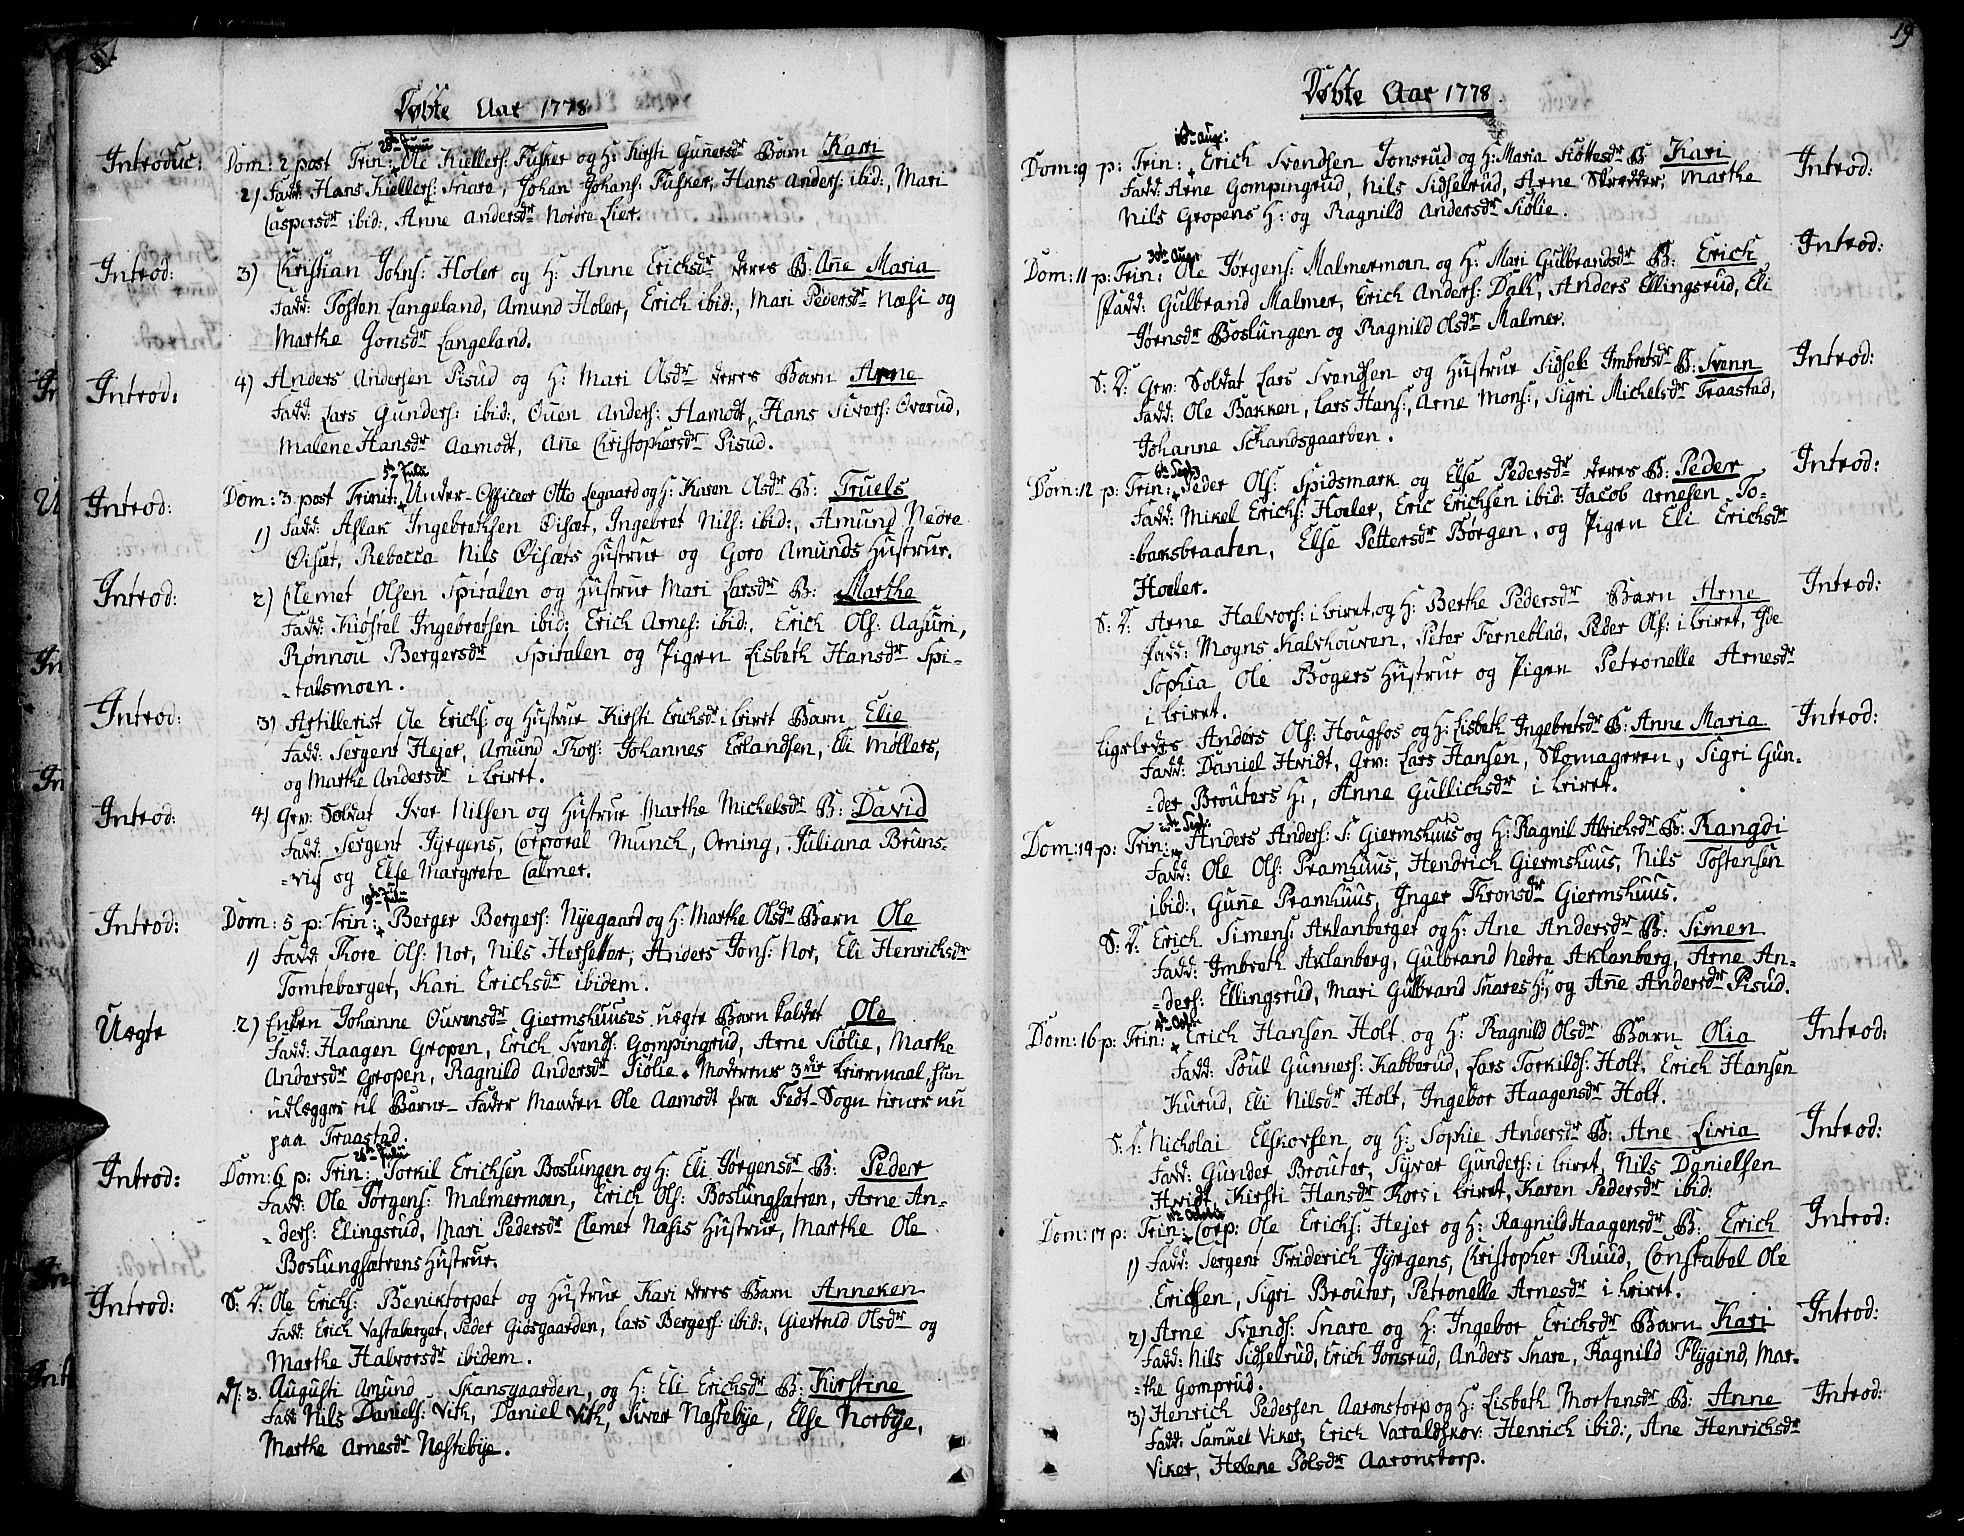 Døbte Aar 1778
28de Junii
Introduc: Dom: 2 post Trin: Ole Kiellers: Fusker og H: Kirsti Guñersdr Barn Kari
2) Fadd: Hans Kiellers: Snare, Johan Johans: Fusker, Hans Anders: ibid:, Mari
Caspersdr ibid:, Anne Andersdr Nordre Lier.
Introd: 3) Christian Johns: Holer og H: Anne Ericksdr deres B: Añe Maria
Fadd: Tosten Langeland, Amund Holer, Erich ibid:, Mari Pedersdr Næsi og
Marthe Gonsdr Langeland.
Introd: 4) Anders Andersen Pisud og H: Mari Olsdr deres Barn Arne
Fadd: Lars Gunders: ibid:, Ouen Anders: Aamodt, Hans Sivers: Overud,
Malene Hansdr Aamodt, Añe Christophersdr Pisud.
5te Julii
Introd: Dom: 3 post Trinit: Under-Officer Otto Legaard og H: Karen Olsdr B: Truels
1) Fadd: Aslak Ingebretsen Øisæt, Ingebret Nils: ibid:, Amund Nedre
Øisæt, Rebecca Nils Øisæts Hustrue og Goro Amunds Hustrue.
Introd: 2) Clemet Olsen Spitalen og Hustrue Mari Larsdr B: Marthe
Fadd: Kiøstel Ingebretsen ibid: Erich Arnes: ibid:, Erich Ols: Aasum,
Rønnou Bergersdr Spitalen og Pigen Lisbeth Hansdr Spi-
-talsmoen.
Introd: 3) Artillerist Ole Erichs: og Hustrue Kirsti Ericksdr i Leiret Barn Elie
Fadd: Sergent Hejer, Amund Thors: Johannes Erlandsen, Eli Møllers,
og Marthe Andersdr i Leiret.
Introd: 4) Gev: Soldat Iver Nilsen og Hustrue Marthe Michelsdr B: David
Fadd: Sergent Jyrgens, Corporal Munck, Orning, Juliana Bruns-
-vis og Else Margrete Calmer.
19de Julii
Introd: Dom: 5 p: Trin: Berger Bergers: Nyegaard og H: Marthe Olsdr Barn Ole
1) Fadd: Tore Ols: Nor, Nils Hersetter, Anders Jons: Nor, Eli Henricksdr
Tomteberget, Kari Ericksdr ibidem.
Uægte 2) Enken Johanne Ouvensdr Giermshuuses uægte Barn kaldet Ole
Fadd: Haagen Gropen, Erich Svends: Gompingrud, Arne Siølie, Marthe
Andersdr Gropen, Ragnild Andersdr Siølie. Moderens 3die Leiermaal, hun
udlægger til Barne-Fader Manden Ole Aamodt fra Fedt-Sogn tiener nu
paa Traastad.
26de Julii
Introd: Dom: 6 p: Trin: Torkil Erichsen Boslungen og H: Eli Jørgensdr B: Peder
Fadd: Ole Jørgens: Malmermoen, Erich Ols: Boslungsætren, Arne An-
-ders: Elingsrud, Mari Pedersdr Clemet Næsis Hustrue, Marthe Ole
Boslungsætrens Hustrue.
Introd: S: D: Ole Erichs: Benektorpet og Hustrue Kari deres Barn Anneken
Fadd: Erich Vastaberget, Peder Giøsgaarden, Lars Bergers: ibid:, Giertrud Olsdr og
Marthe Halvorsdr ibidem.
D. 3. Augusti Amund Skansgaarden, og H: Eli Ericksdr B: Kirstine
Fadd: Nils Daniels: Vith, Daniel Vith, Siver Næstebye, Else Norbye,
Marthe Arnesdr Næstebye.
19
Døbte Aar 1778.
16de Aug:
Dom: 9 p: Trin: Erich Svendsen Jonsrud og H: Maria Siøttesdr B: Kari Introd:
Fadd: Arne Gompingrud, Nils Sidselrud, Arne Skredder, Marthe
Nils Gropens H: og Ragnild Andersdr Siølie.
30te Aug:
Dom: 11 p: Trin: Ole Jørgens: Malmermoen og H: Mari Gulbrandsdr B: Erich Introd:
Fadd: Gulbrand Malmer, Erich Anders: Dahl, Anders Ellingsrud, Eli
Jørnsdr Boslungen og Ragnild Olsdr Malmer.
S: D: Gev: Soldat Lars Svendsen og Hustrue Sidsele Imbretsdr B: Svenn Introd:
Fadd: Ole Bakken, Lars Hans:, Arne Mons:, Sigri Michelsdr Traastad,
Johanne Schandsgaarden.
6te Sept:
Dom: 12 p: Trin: Peder Ols: Spidsmark og Else Pedersdr deres B: Peder Introd:
Fadd: Mikel Erichs: Hoeler, Eric Erichsen ibid: Jacob Arnesen To-
-baksbraaten, Else Pettersdr Børgen, og Pigen Eli Ericksdr
Hoeler.
S: D: Arne Halvors: i Leiret, og H: Berthe Pedersdr Barn Arne Introd:
Fadd: Mogns Kalvhouven, Peter Ferneblad, Peder Ols: i Leiret, Ide
Sophia Ole Bogers Hustrue og Pigen Petronelle Arnesdr
i Leiret.
Ligeledes Anders Ols: Hougfos og H: Lisbeth Ingebretsdr B: Anne Maria Introd:
Fadd: Daniel Hvidt, Gev: Lars Hansen, Skomageren, Sigri Gun-
-der Brouters H:, Anne Gullichsdr i Leiret.
20de Sept:
Dom: 14 p: Trin: Anders Anders: S: Giermshuus og H: Ragnil Alrichsdr B: Rangdi
Fadd: Ole Ols: Pramhuus, Hendrich Giermshuus, Nils Tostensen
ibid:, Guñe Pramhuus, Inger Thronsdr Giermshuus.
S: D: Erich Simens: Aklanberget og H: Ane Andersdr B: Simen
Fadd: Imbreth Aklanberg, Gulbrand Nedre Aklanberg, Arne An-
-ders: Ellingsrud, Mari Gulbrand Snares H:, og Añe Andersdr Pisud.
4de Octb:
Dom: 16 p: Trin: Erich Hansen Holt og H: Ragnild Olsdr Barn Olia Introd:
Fadd: Poul Gunners: Kabberud, Lars Torkilds: Holt, Erich Hansen
Kurud, Eli Nilsdr Holt, Ingebor Haagensdr Holt.
S: D: Nicholai Elskovsen og H: Sophie Andersdr B: Ane Livia Introd:
Fadd: Gunder Brouter, Syver Gunders: i Leiret, Nils Danielsen
Hvidt, Kirsti Hansdr Kors i Leiret, Karen Pedersdr ibid:
11te Octobr
Dom: 17 p: Trin: Corp: Ole Erichs: Hejer og H: Ragnild Haagensdr B: Erich Introd:
1) Fadd: Sergent Friderich Jyrgens, Christopher Ruud, Constabel Ole
Erichsen, Sigri Brouter, Petronelle Arnesdr i Leiret.
2) Arne Svends: Snare og H: Ingebor Ericksdr Barn Kari Introd:
Fadd: Nils Sidselrud, Erich Jonsrud, Anders Snare, Ragnild Flygind, Mar-
-the Gomprud.
3) Henrich Pedersen Aaronstorp og H: Lisbeth Mortensdr B: Anne Introd:
Fadd: Samuel Viker, Erich Varaldskov: Henrich ibid:, Ane Henricksdr
Viker, Helene Polsdr Aaronstorp.